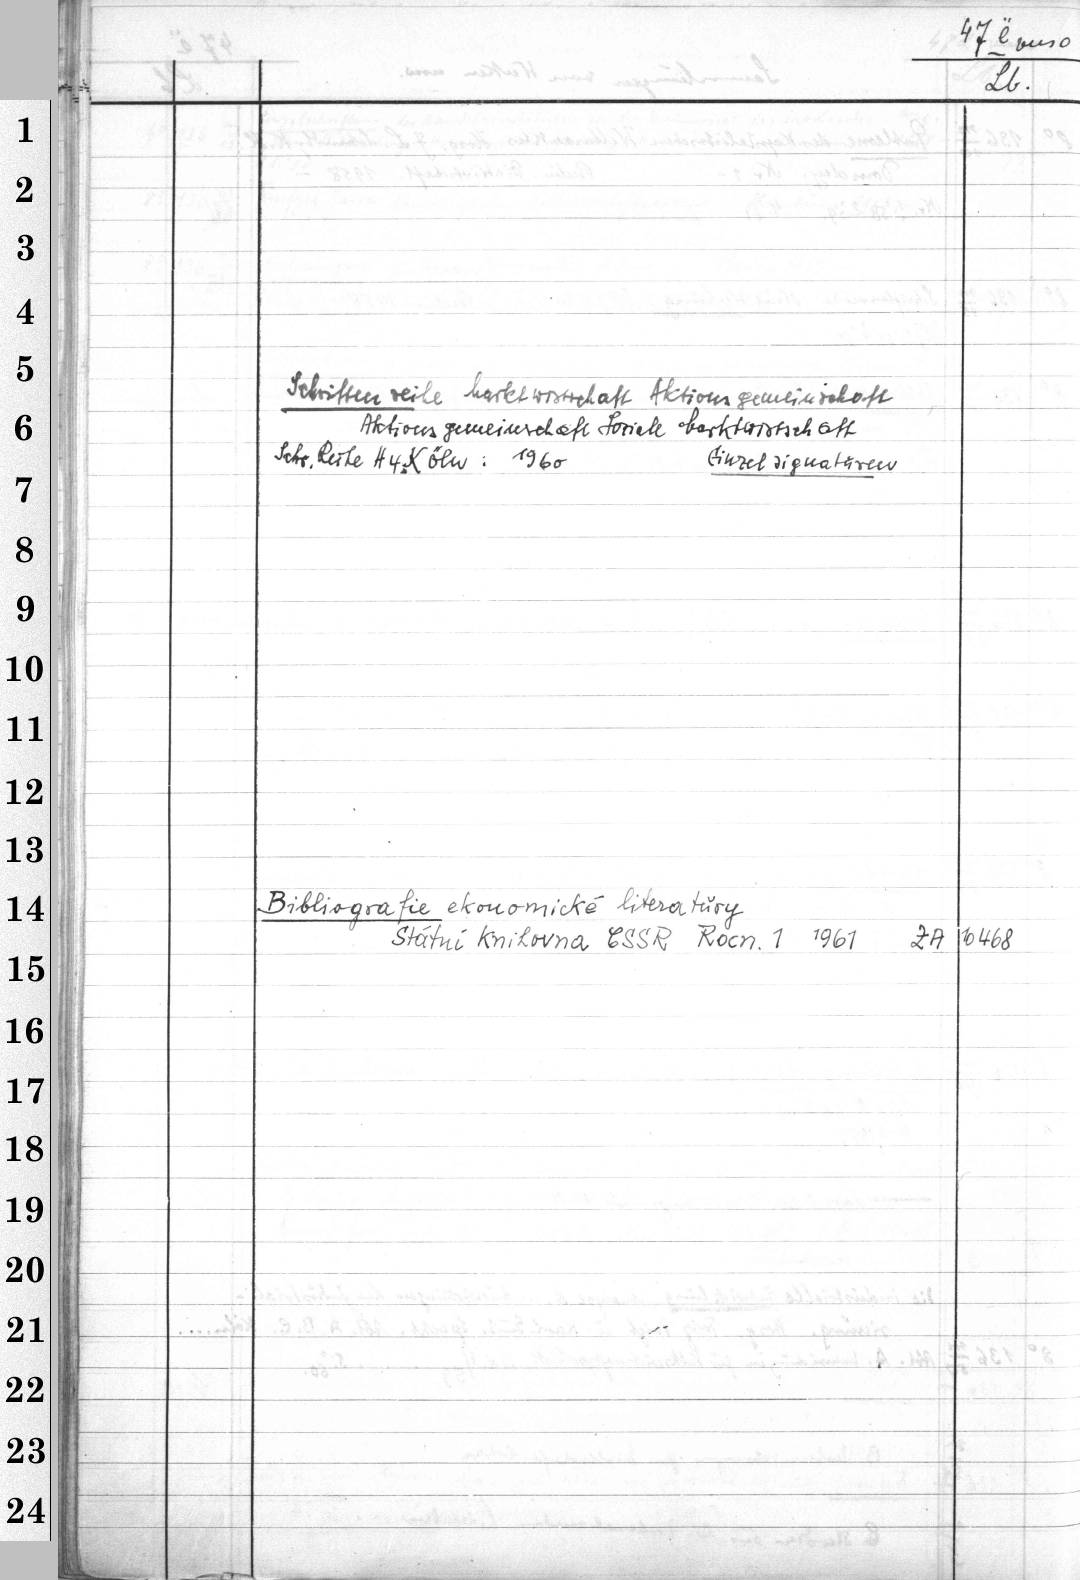 47 ë verso
Lb.
1
2
3
4
5
Schriftenreihe Marktwirtschaft Aktionsgemeinschaft
6
Aktionsgemeinschaft Soziale Marktwirtschaft
Schr. Reihe H 4. Köln : 1960 Einzelsignaturen
7
8
9
10
11
12
13
14
Bibliografie ekonomické literatůry
Státní Knihovna ČSSR Rocn. 1 1961 ZA 10468
15
16
17
18
19
20
21
22
23
24